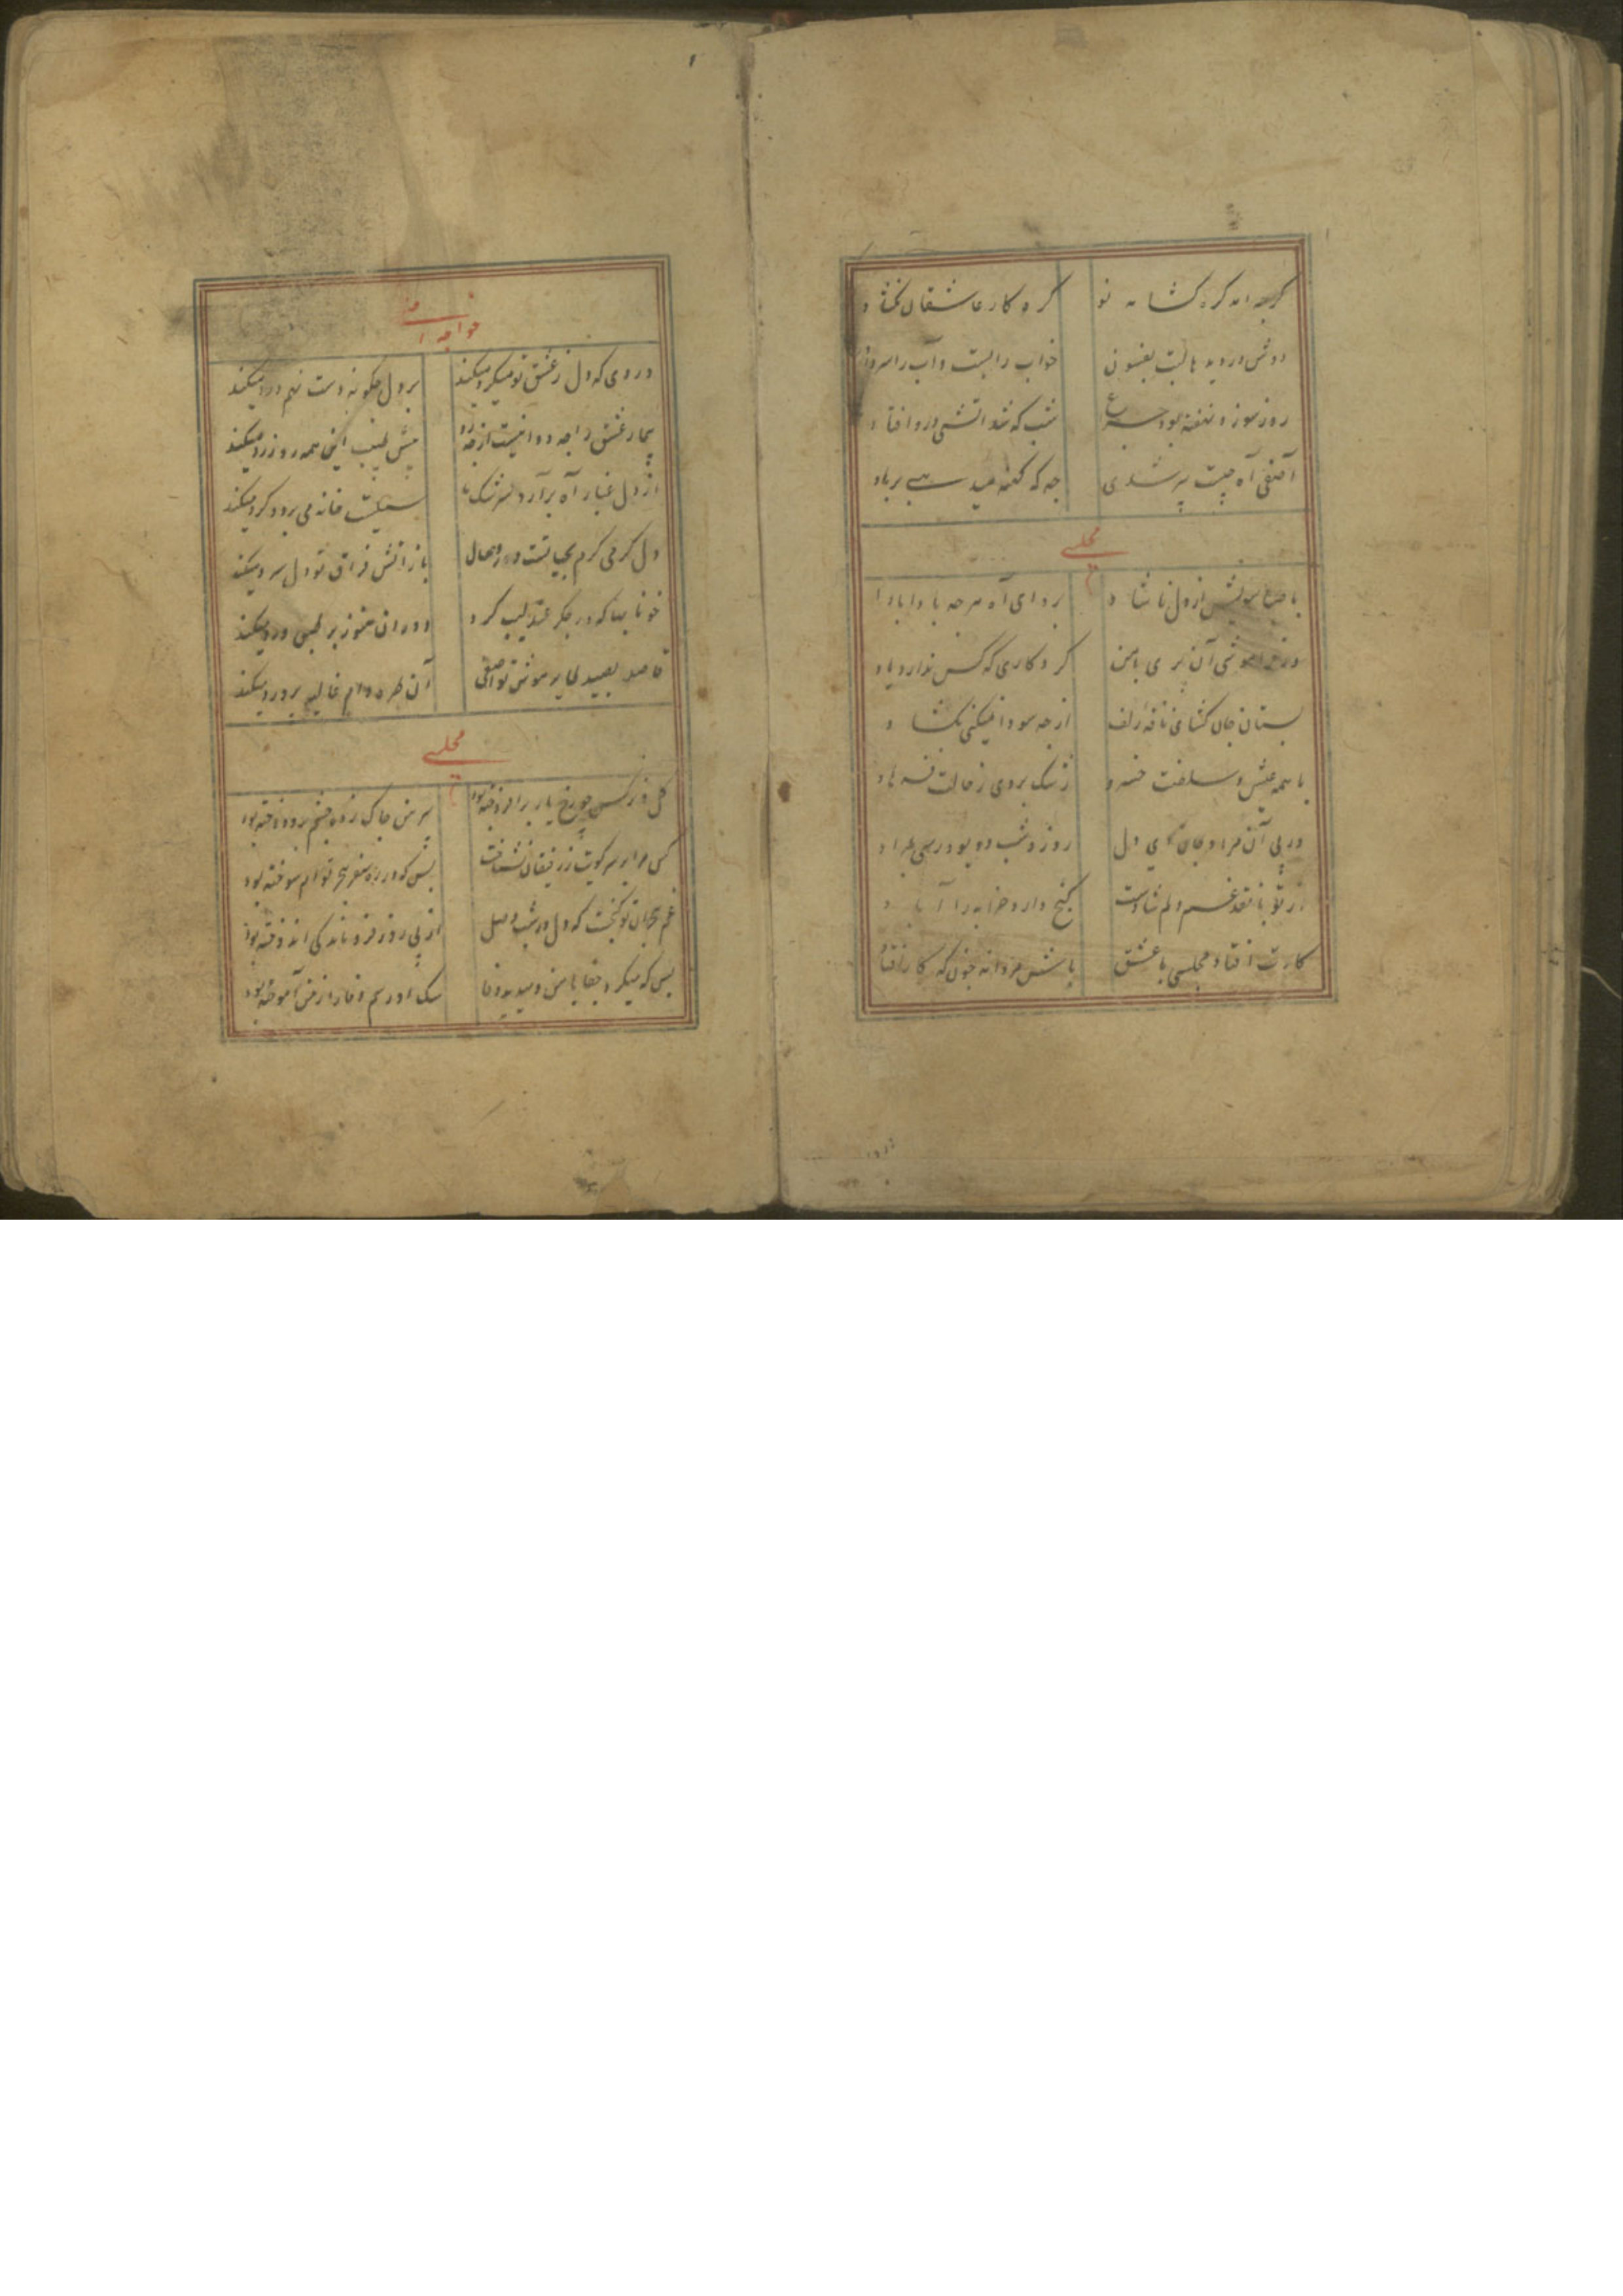 کرچه امد کره کشا مه نو کره کار عاشقان نکشا د
دوش در دیده بالبت بفسون خواب را بست و آب را سرداد
روز سوز نهفته بود شب که شد اتشی درو افتا د
آصفی آه چیست پر شدی چه که کفته برباد
مجلسی
از دل ناشا د بر و ای آه هرچه بادا باد
آن پری با من کرد کاری که کس ندارد یاد
بستان جان کشای نافه زلف از چه سودا نمیکنی بکشا د
با همه عیش و سلطنت خسرو رشک بردی ز حالت فرهاد
در پی آن مراد جان ای دل روز و شب دو بود
از تو با نقد غم دلم شادست کنج دارد خرابه را آبا د
کارت افتاد مجلسی با عشق باش مردانه چون که کار افتاد
خواجه آصفی
دردی که دل ز عشق تو میکرد میکند بر دل چکونه دست نهم درد میکند
بیمار عشق را چه دوا نیست از چه رو پیش طبیب این همه رو زرد میکند
از دل غبار آه برآرد سرشک ما سیلست خانه می برد و کرد میکند
دل کرمی کرم بحیاتست و باز اتش فراق تو دل سرد میکند
خونابها که در جکر عندلیب کرد دوران هنوز بر طبق ورد میکند
قاصد بصید آصفی آن طره دام غالیه پرورد میکند
مجلسی
کل و نرکس چو رخ یار برافروخته بود پیرهن چاک زده چشم برو دوخته بود
کس مرا بر سر کویت ز رفیقان نشناخت بس که در راه سفر هجر توام سوخته بود
غم هجران تو کنجست که دل در شب وصل از پی روز فرو ماندکی اندوخته بود
بس که میکرد جفا با من و میدید وفا سک او رسم وفا را ز من آموخته بود